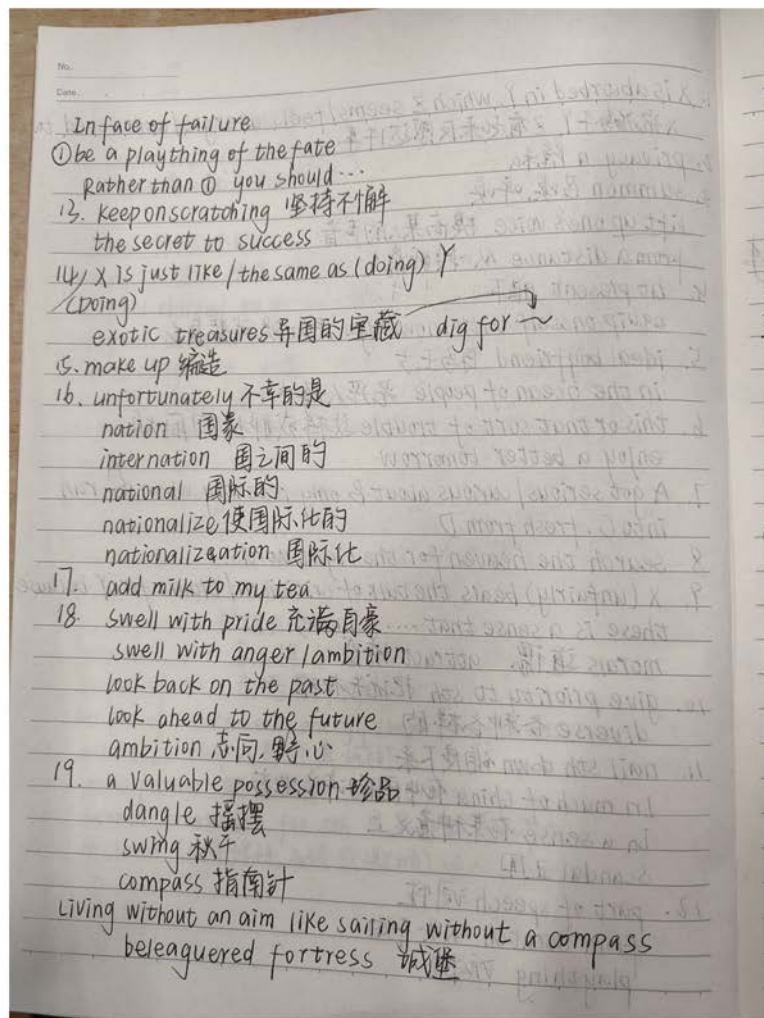 No.
Date.
In face of failure
①be a plaything of the fate
Rather than ① you should…
13. keep on scratching 坚持不懈
the secret to success
14, X is just like / the same as (doing) Y
(Doing)
exotic treasures 异国的宝藏 dig for ~
15. make up 编造
16. unfortunately 不幸的是
nation 国家
internation 国之间的
national 国际的
nationalize 使国际化的
nationalizeation 国际化
17. add milk to my tea
18. swell with pride 充满自豪
swell with anger / ambition
look back on the past
look ahead to the future
ambition 志向,野心
19. a valuable possession 珍品
dangle 摇摆
swing 秋千
compass 指南针
Living without an aim like sailing without a compass
beleaguered fortress 城堡